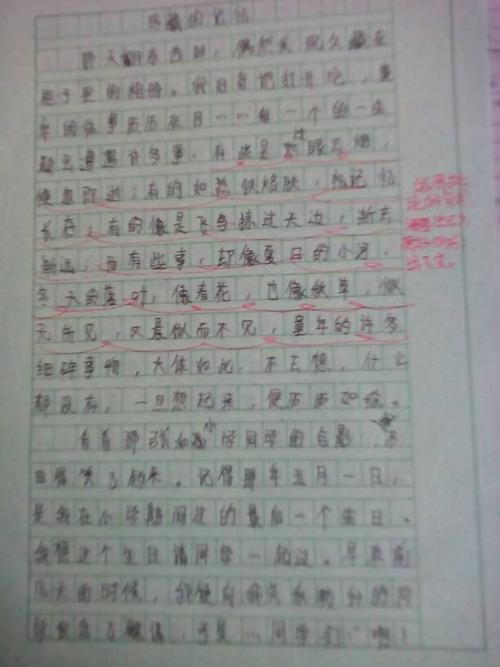 珍藏的记忆
昨天翻东西时,偶然发现久藏在
柜子里的相册。我好奇地打开它,童
年的往事历历在目……每一个的一生
都会遭遇许多事,有些是过眼云烟,
倏忽即逝;有的如热铁烙肤,记忆
长存;有的像是飞鸟掠过天边,渐去
渐远;而有些事,却像夏日的小河,
冬天的落叶,像春花,也像秋草,似
无所见,又是似而不见,童年的许多
细碎事物,大体如此,不去想,什么
都没有,一旦想起来,便历历如绘。
看着那张和小学同学的合影,不
由得笑了起来。记得那年五月一日,
是我在小学期间过的最后一个生日。
我想这个生日请同学一起过。早在前
几天的时候,我便向我关系较好的同
学发出了邀请,于是…同学们"啊!